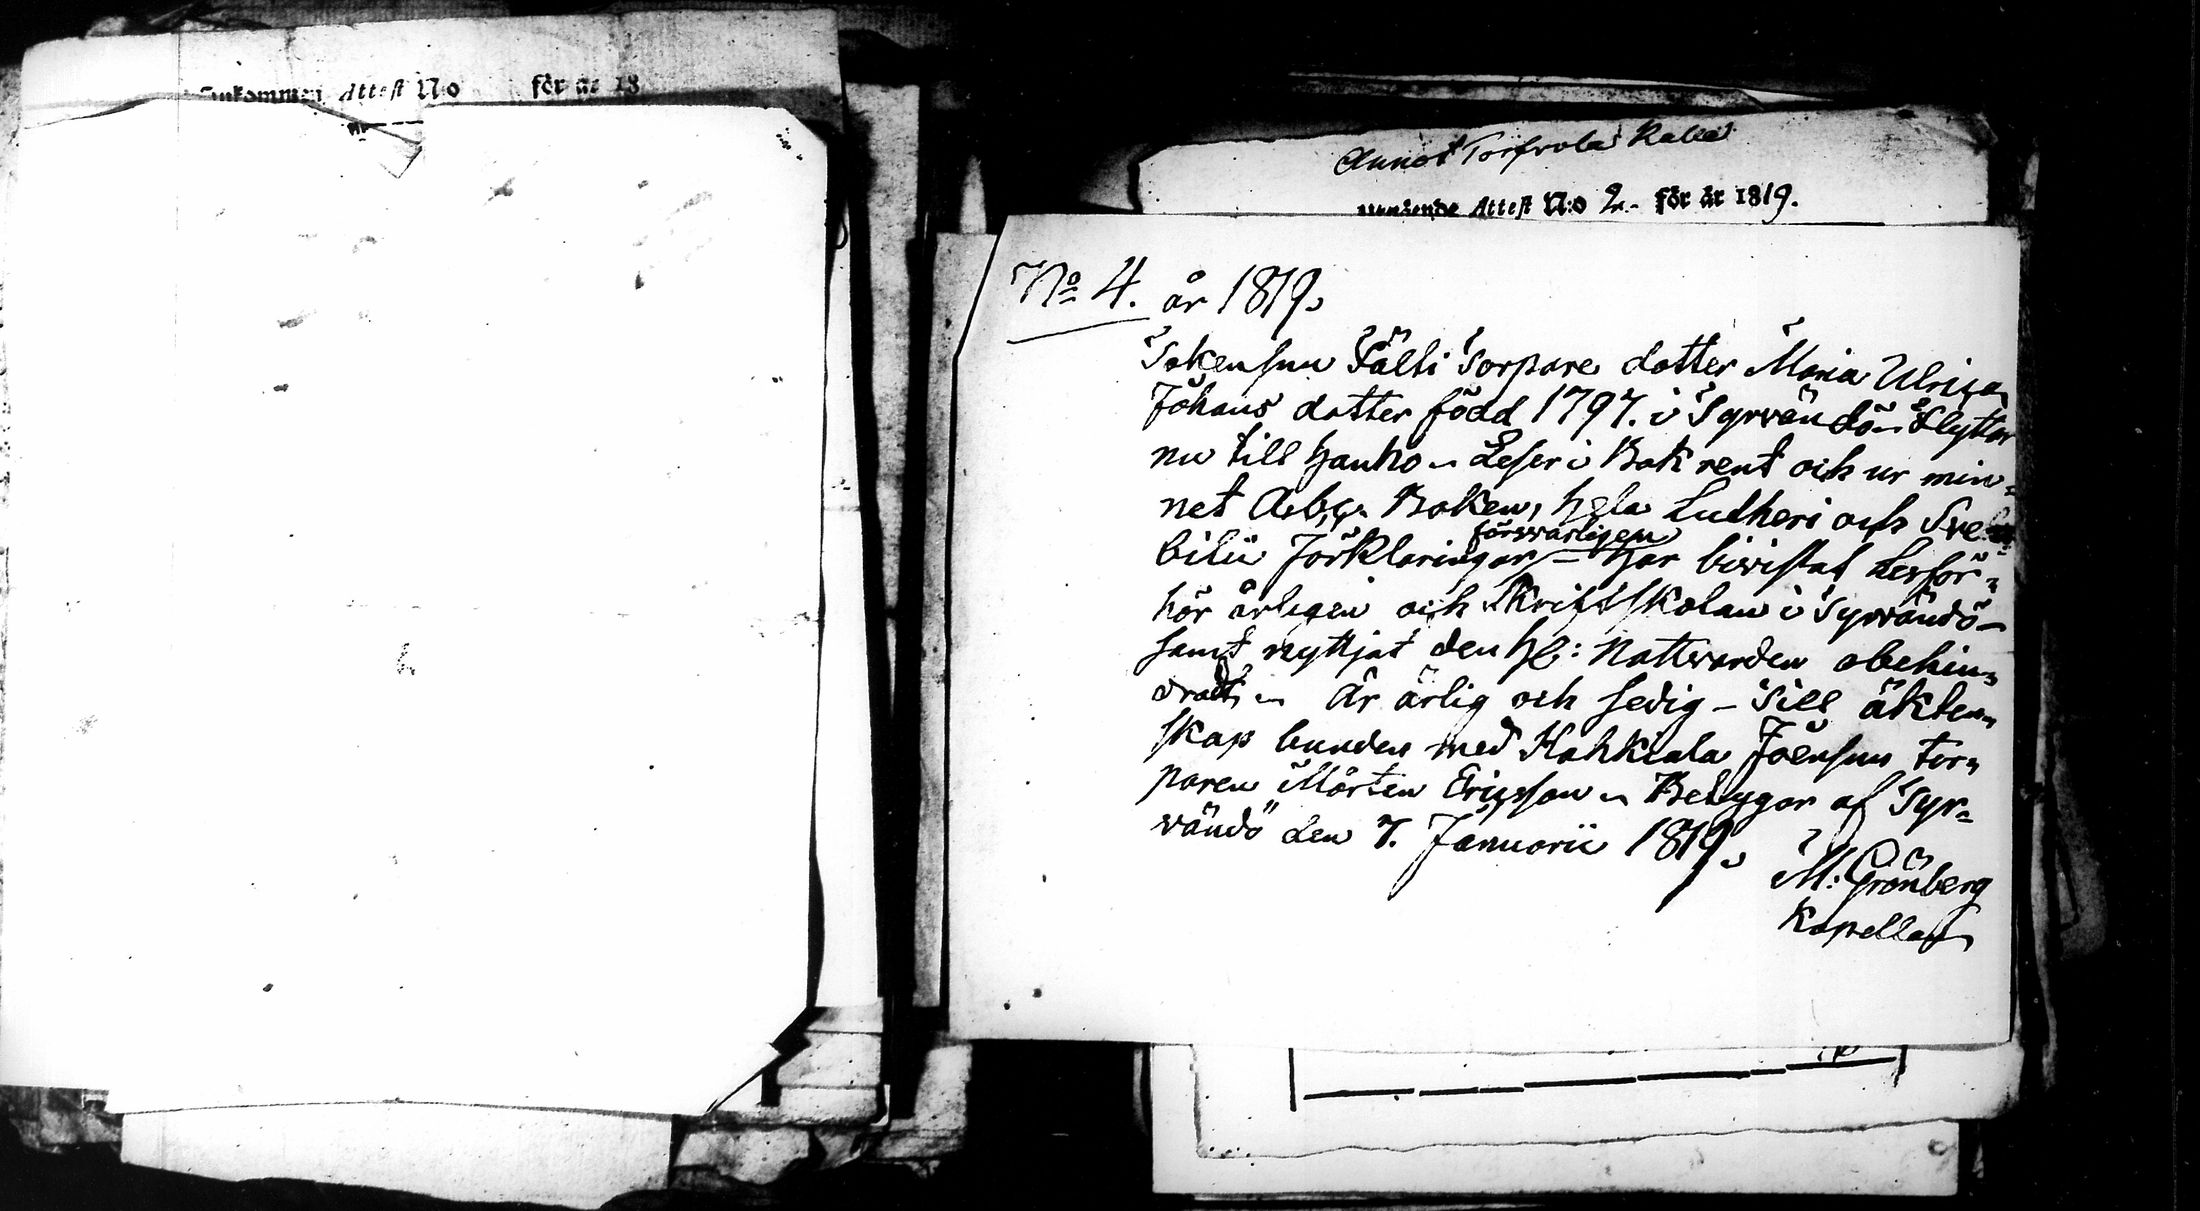 Inkommen Attest N:o för år 18
Annot
ående Attest N:o 2. för år 1819.
No 4. år 1819.
Fälti Torpare dotter Maria Ulrica
Johans dotter född 1797. i Tyrvändö - Flyttar
nu till Hauho - Läser i Bok rent och ur min=
net Abc. Boken, hela Lutheri och Sve
bilii Förklaringar försvarligen - Har bivistat Läsför=
hör årligen och Skriftskolan i Tyrvändö -
samt nyttjat den Hl: Nattvarden obehin=
dradt - Är ärlig och sedig - Till äkten=
skap bunden med Hahkiala Jöensuu tor=
paren Mårten Ericsson - Betygar af Tyr=
vändö den 7. Januarii 1819.
M: Grönberg
Kapellan